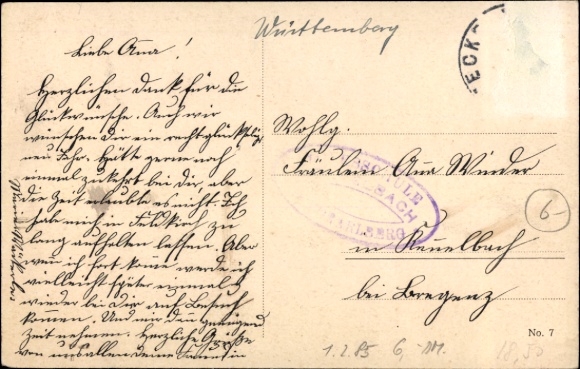 Württemberg
Liebe Anna!
Herzlichen Dank für die
Glückwünsche. Auch wir
wünschen Dir ein recht glückseliges
neu Jahr. Hätte gerne noch
einmal zukehrt bei dir, aber
die Zeit erlaubte es nicht. Ich
habe mich in Feldkirch zu
lang aufhalten lassen. Aber
wen ich fort könne werde ich
vielleicht später einmal
wieder bei dir auf Besuch
kommen. Und mir dan genügend
Zeit nehmen. Herzliche Grüße
von uns allen deine Freundin
ECK
Wohlg.
Fräulein Anna Winder
in Kennelbach
bei Bregenz
ULE
BACH
ARLBERG
6-
No. 7
1.2.85 6,-M.
18,50